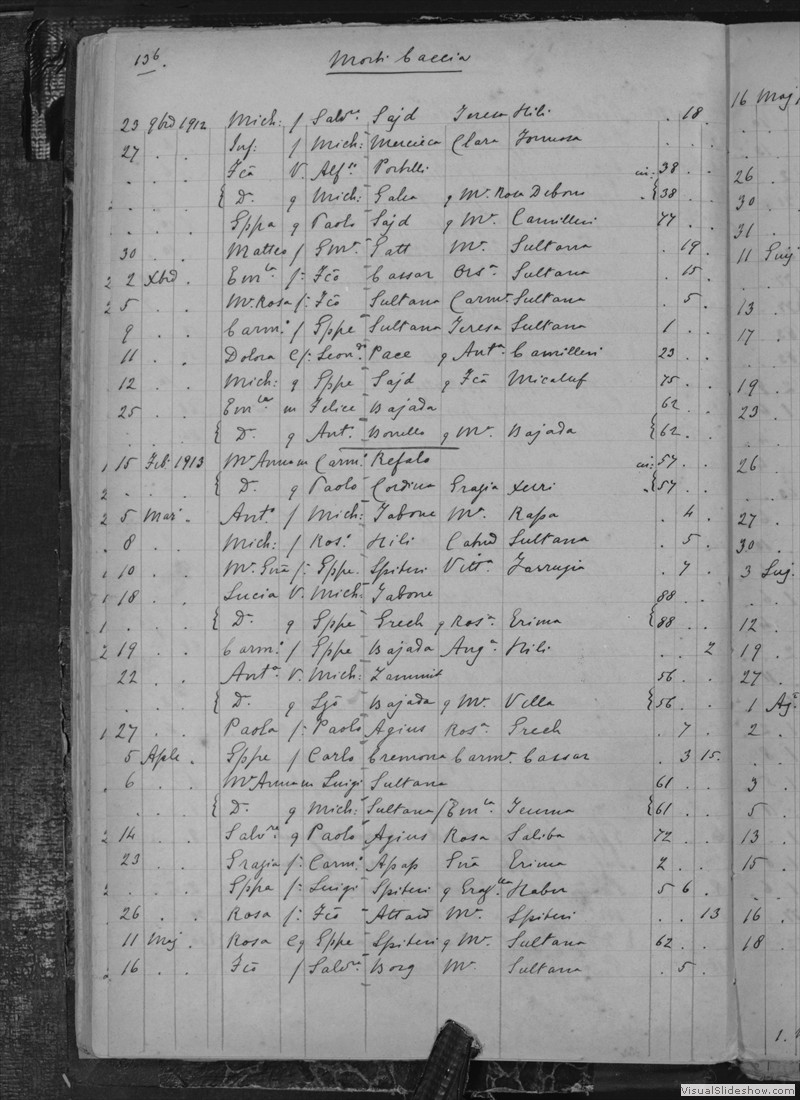 136.
Morti Caccia
23 9bre 1912 Mich: f Salvre Sajd Teresa Hili . 18 .
27 . . Inf: f Mich: Mercieca Clara Formosa . . .
. . . Fcõ V. Alfro Portelli in: 38 . .
. . . { D. q Mich: Galea q Mª Rosa Debono { 38 . .
. . . Gppa q Paolo Sajd q Mª Camilleri 77 . .
30 . . Matteo f Emle Gatt Mª Sultana . 19 .
2 2 Xbre . Emla f: Fcõ Cassar Orsª Sultana . 15 .
2 5 . . Mª Rosa f: Fcõ Sultana Carmª Sultana . 5 .
9 . . Carmª f Gppe Sultana Teresa Sultana 1 . .
11 . . Dolora C f: Leondo Pace q Antª Camilleri 23 . .
12 . . Mich: q Gppe Sajd q Fcã Micaluf 75 . .
25 . . Emla m Felice Bajada 62 . .
. . . { D. q Antº Borello q Mª Bajada { 62 . .
1 15 Feb. 1913 Mª Anna m Carmº Refalo in: 57 . .
2 . . . { D. q Paolo Cordina Grazia Xerri { 57 . .
2 5 Mar . Antº f Mich: Tabone Mª Rapa . 4 .
. 8 . . Mich: f Rosº Hili Catnª Sultana . 5 .
1 10 . . Mª Gnã f: Gppe Spiteri Vittª Farrugia . 7 .
1 18 . . Lucia V. Mich: Tabone 88 . .
1 . . . { D. q Gppe Grech q Rosª Erima { 88 . .
2 19 . . Carmª f Gppe Bajada Angª Hili . . 2
22 . . Antª V. Mich: Zammit 56 . .
. . . { D. q Ljõ Bajada q Mª Villa { 56 . .
1 27 . . Paola f: Paolo Agius Rosª Grech . 7 .
5 Aple . Gppe f Carlo Cremona Carmª Cassar . 3 15.
. 6 . . Mª Anna m Luigi Sultana 61 . .
. . . { D. q Mich: Sultana f Emla Jemma { 61 . .
2 14 . . Salvre q Paolo Agius Rosa Saliba 72 . .
23 . . Grazia f: Carmº Apap Gnã Erima 2 . .
2 . . . Gppa f: Luigi Spiteri q Grazlla Haber 5 6 .
. 26 . . Rosa f: Fcõ Attard Mª Spiteri . . 13
11 Maj . Rosa C q Gppe Spiteri q Mª Sultana 62 . .
. 16 . . Fcõ f Salvre Borg Mª Sultana . 5 .
16 Maj
26 .
30 .
31 .
11 Giug
13 .
17 .
19 .
23 .
26 .
27 .
30 .
3 Lug.
12 .
19 .
27 .
1 Ag.
2 .
3 .
5 .
13 .
15 .
16 .
18 .
1.
VisualSlideshow.com